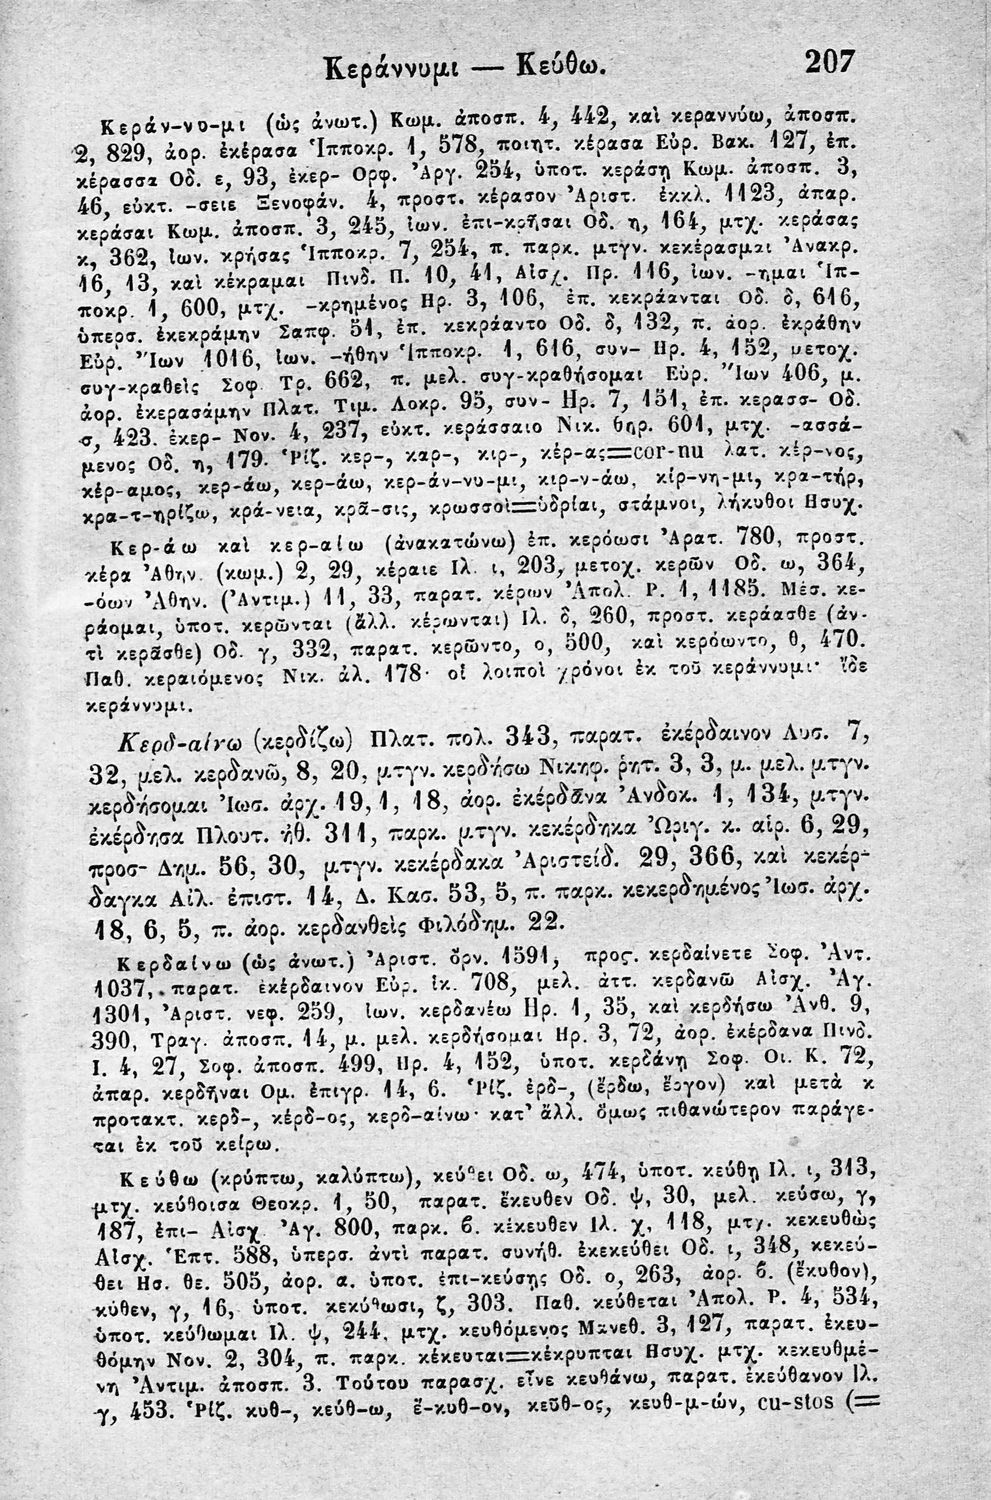 Κεράννυμι — Κεύθω. 207
Κεράν-νυ-μι (ὡς ἀνωτ.) Κωμ. ἀποσπ. 4, 442, καὶ κεραννύω, ἀποσπ.
2, 829, ἀορ. ἐκέρασα Ἱπποκρ. 1, 578, ποιητ. κέρασα Εὐρ. Βακ. 127, ἐπ.
κέρασσα Οδ. ε, 93, ἐκερ- Ορφ. Ἀργ. 254, ὑποτ. κεράσῃ Κωμ. ἀποσπ. 3,
46, εὐκτ. -σειε Ξενοφάν. 4, προστ. κέρασον Ἀριστ. ἐκκλ. 1123, ἀπαρ.
κεράσαι Κωμ. ἀποσπ. 3, 245, ἰων. ἐπι-κρῆσαι Οδ. η, 164, μτχ. κεράσας
κ, 362, ἰων. κρήσας Ἱπποκρ. 7, 254, π. παρκ. μτγν. κεκέρασμαι Ἀνακρ.
16, 13, καὶ κέκραμαι Πινδ. Π. 10, 41, Αἰσχ. Πρ. 116, ἰων. -ημαι Ἱπ-
ποκρ. 1, 600, μτχ. -κρημένος Ηρ. 3, 106, ἐπ. κεκράανται Οδ. δ, 616,
ὑπερσ. ἐκεκράμην Σαπφ. 51, ἐπ. κεκράαντο Οδ. δ, 132, π. ἀορ. ἐκράθην
Εὐρ. Ἴων 1016, ἰων. -ήθην Ἱπποκρ. 1, 616, συν- Ηρ. 4, 152, μετοχ.
συγ-κραθεὶς Σοφ. Τρ. 662, π. μελ. συγ-κραθήσομαι Εὐρ. Ἴων 406, μ.
ἀορ. ἐκερασάμην Πλατ. Τιμ. Λοκρ. 95, συν- Ηρ. 7, 151, ἐπ. κερασσ- Οδ.
σ, 423. ἐκερ- Νον. 4, 237, εὐκτ. κεράσσαιο Νικ. θηρ. 601, μτχ. -ασσά-
μενος Οδ. η, 179. Ῥίζ. κερ-, καρ-, κιρ-, κέρ-ας=cor-nu λατ. κέρ-νος,
κέρ-αμος, κερ-άω, κερ-άω, κερ-άν-νυ-μι, κιρ-ν-άω, κίρ-νη-μι, κρα-τήρ,
κρα-τ-ηρίζω, κρά-νεια, κρᾶ-σις, κρωσσοὶ=ὑδρίαι, στάμνοι, λήκυθοι Ησυχ.
Κερ-άω καὶ κερ-αίω (ἀνακατώνω) ἐπ. κερόωσι Ἀρατ. 780, προστ.
κέρα Ἀθην. (κωμ.) 2, 29, κέραιε Ιλ. ι, 203, μετοχ. κερῶν Οδ. ω, 364,
-όων Ἀθην. (Ἀντιμ.) 11, 33, παρατ. κέρων Ἀπολ. Ρ. 1, 1185. Μέσ. κε-
ράομαι, ὑποτ. κερῶνται (ἄλλ. κέρωνται) Ιλ. δ, 260, προστ. κεράασθε (ἀν-
τὶ κερᾶσθε) Οδ. γ, 332, παρατ. κερῶντο, ο, 500, καὶ κερόωντο, θ, 470.
Παθ. κεραιόμενος Νικ. ἀλ. 178· οἱ λοιποὶ χρόνοι ἐκ τοῦ κεράννυμι· ἴδε
κεράννυμι.
Κερδ-αίνω (κερδίζω) Πλατ. πολ. 343, παρατ. ἐκέρδαινον Λυσ. 7,
32, μελ. κερδανῶ, 8, 20, μτγν. κερδήσω Νικηφ. ῥητ. 3, 3, μ. μελ. μτγν.
κερδήσομαι Ἰωσ. ἀρχ. 19, 1, 18, ἀορ. ἐκέρδᾱνα Ἀνδοκ. 1, 134, μτγν.
ἐκέρδησα Πλουτ. ἠθ. 311, παρκ. μτγν. κεκέρδηκα Ὠριγ. κ. αἱρ. 6, 29,
προσ- Δημ. 56, 30, μτγν. κεκέρδακα Ἀριστείδ. 29, 366, καὶ κεκέρ-
δαγκα Αἰλ. ἐπιστ. 14, Δ. Κασ. 53, 5, π. παρκ. κεκερδημένος Ἰωσ. ἀρχ.
18, 6, 5, π. ἀορ. κερδανθεὶς Φιλόδημ. 22.
Κερδαίνω (ὡς ἀνωτ.) Ἀριστ. ὄρν. 1591, προς. κερδαίνετε Σοφ. Ἀντ.
1037, παρατ. ἐκέρδαινον Εὐρ. ἱκ. 708, μελ. ἀττ. κερδανῶ Αἰσχ. Ἀγ.
1301, Ἀριστ. νεφ. 259, ἰων. κερδανέω Ηρ. 1, 35, καὶ κερδήσω Ἀνθ. 9,
390, Τραγ. ἀποσπ. 14, μ. μελ. κερδήσομαι Ηρ. 3, 72, ἀορ. ἐκέρδανα Πινδ.
Ι. 4, 27, Σοφ. ἀποσπ. 499, Ηρ. 4, 152, ὑποτ. κερδάνῃ Σοφ. Οι. Κ. 72,
ἀπαρ. κερδῆναι Ομ. ἐπιγρ. 14, 6. Ῥίζ. ἐρδ-, (ἔρδω, ἔργον) καὶ μετὰ κ
προτακτ. κερδ-, κέρδ-ος, κερδ-αίνω· κατ᾽ ἄλλ. ὅμως πιθανώτερον παράγε-
ται ἐκ τοῦ κείρω.
Κεύθω (κρύπτω, καλύπτω), κεύθει Οδ. ω, 474, ὑποτ. κεύθῃ Ιλ. ι, 313,
μτχ. κεύθοισα Θεοκρ. 1, 50, παρατ. ἔκευθεν Οδ. ψ, 30, μελ. κεύσω, γ,
187, ἐπι- Αἰσχ. Ἀγ. 800, παρκ. β. κέκευθεν Ιλ. χ, 118, μτχ. κεκευθὼς
Αἰσχ. Ἑπτ. 588, ὑπερσ. ἀντὶ παρατ. συνήθ. ἐκεκεύθει Οδ. ι, 348, κεκεύ-
θει Ησ. θε. 505, ἀορ. α. ὑποτ. ἐπι-κεύσῃς Οδ. ο, 263, ἀορ. β. (ἔκυθον),
κύθεν, γ, 16, ὑποτ. κεκύθωσι, ζ, 303. Παθ. κεύθεται Ἀπολ. Ρ. 4, 534,
ὑποτ. κεύθωμαι Ιλ. ψ, 244, μτχ. κευθόμενος Μανεθ. 3, 127, παρατ. ἐκευ-
θόμην Νον. 2, 304, π. παρκ. κέκευται=κέκρυπται Ησυχ. μτχ. κεκευθμέ-
νη Ἀντιμ. ἀποσπ. 3. Τούτου παρασχ. εἶνε κευθάνω, παρατ. ἐκεύθανον Ιλ.
γ, 453. Ῥίζ. κυθ-, κεύθ-ω, ἔ-κυθ-ον, κεῦθ-ος, κευθ-μ-ών, cu-stos (=